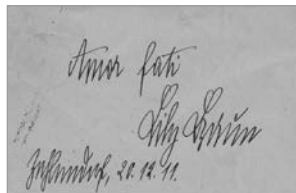 Amor fati
Lily Braun
Zehlendorf, 20.12.11.